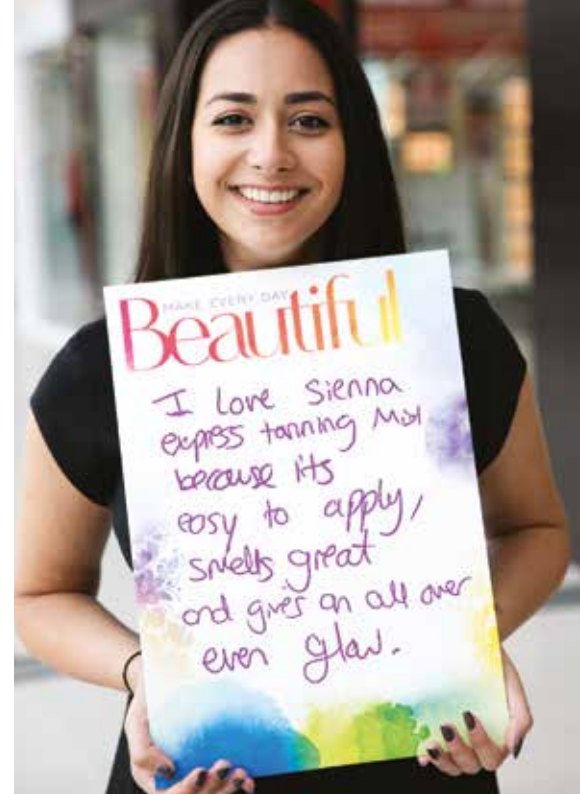 MAKE EVERY DAY
Beautiful
I love Sienna
express tanning Mist
because its
easy to apply,
smells great
and gives an all over
even glow.